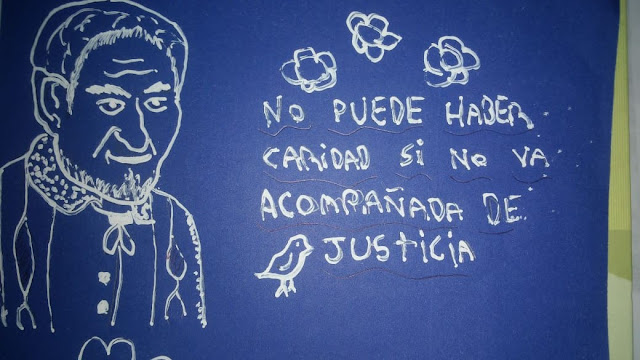 NO PUEDE HABER
CARIDAD SI NO VA
ACOMPAÑADA DE
JUSTICIA